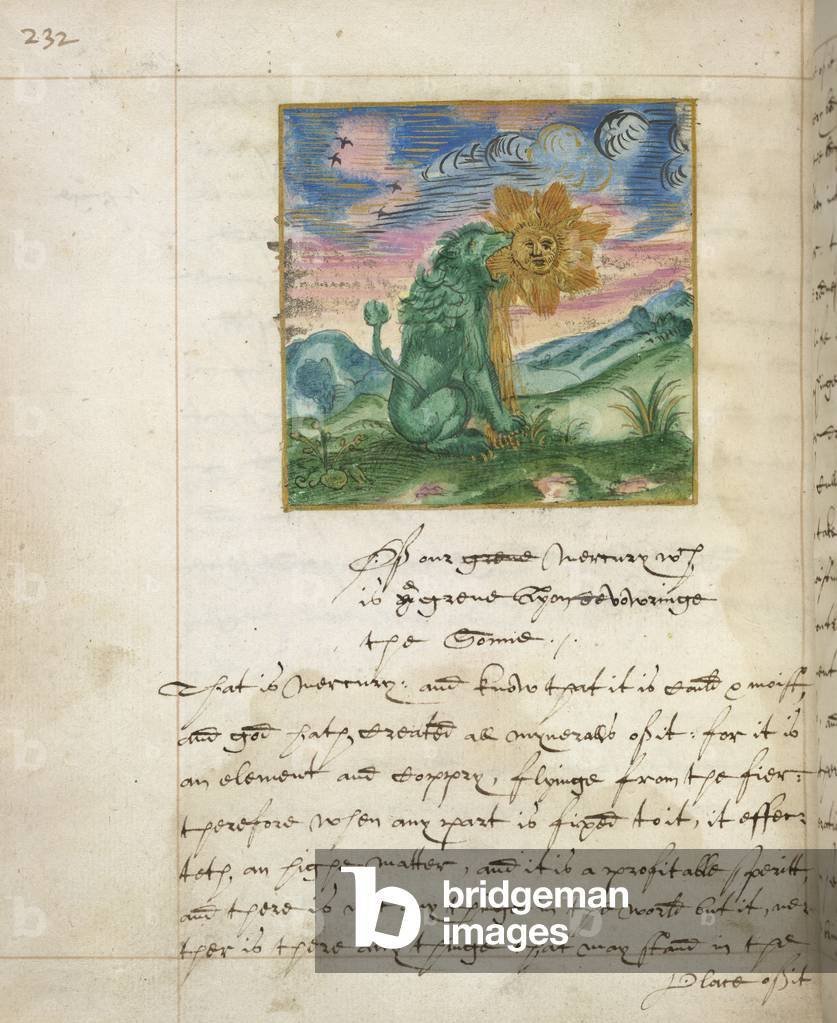 232
Off our grene Mercury wch
is ye grene Lyon devowringe
the Sonne ./.
That is Mercury: and know that it is could & moist,
and god hath created all myneralls off it: for it is
an element and coppry, flyinge from the fier:
therefore when any part is fixed to it, it effec:
teth, an highe matter, and it is a profitable speritt,
and there is in the world but it, nei
ther is there any thinge that may stand in the
Place off it
bridgeman
images